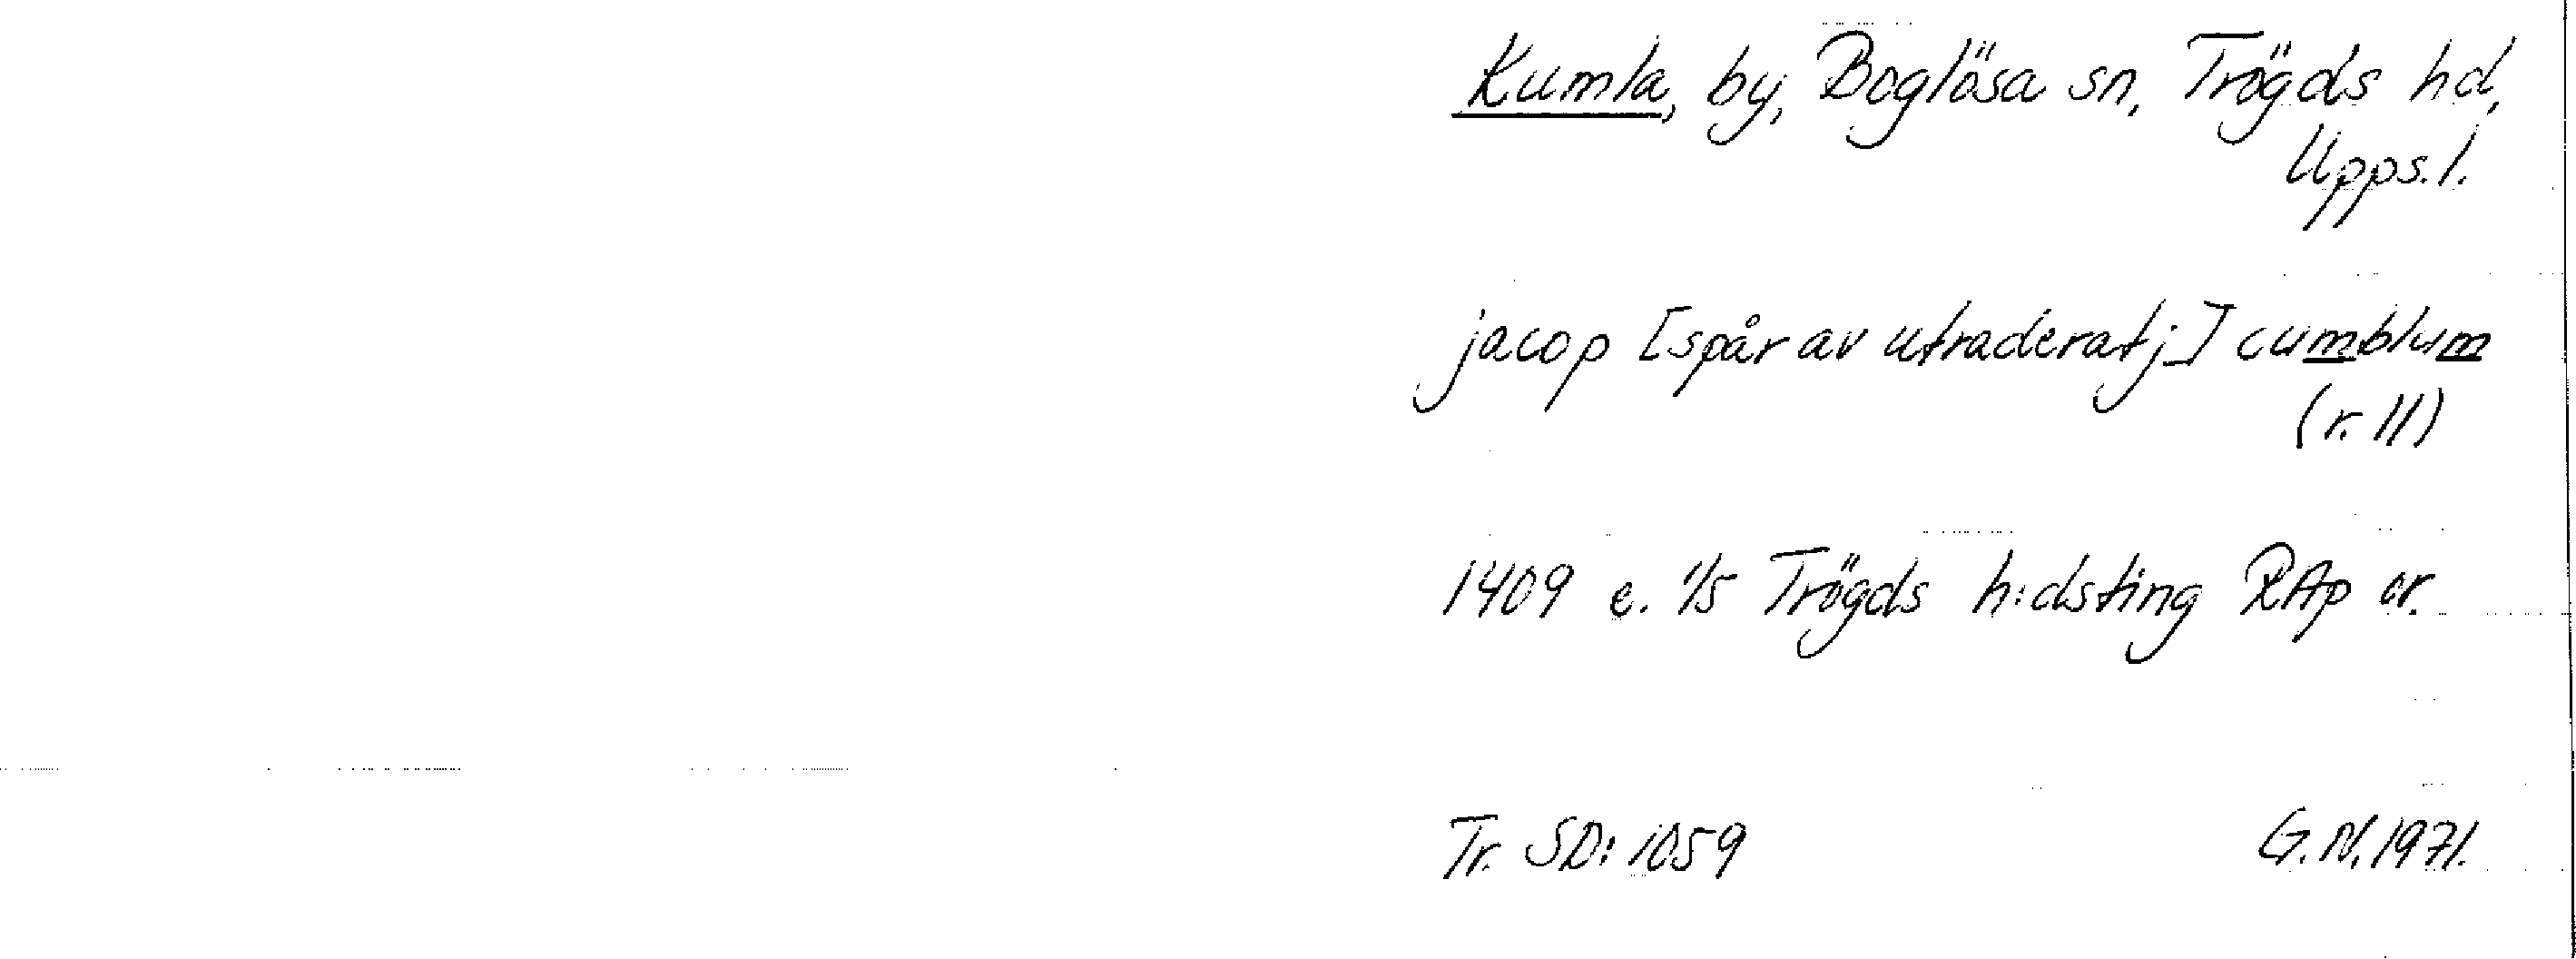 Kumla, by, Boglösa sn, Trögds hd,
Upps. l.
jacop [spår av utraderat j] cumblum
(r. 11)
1409 e. 1/5 Trögds h:dsting RAp or.
Tr. SD: 1059 G.N. 1971.